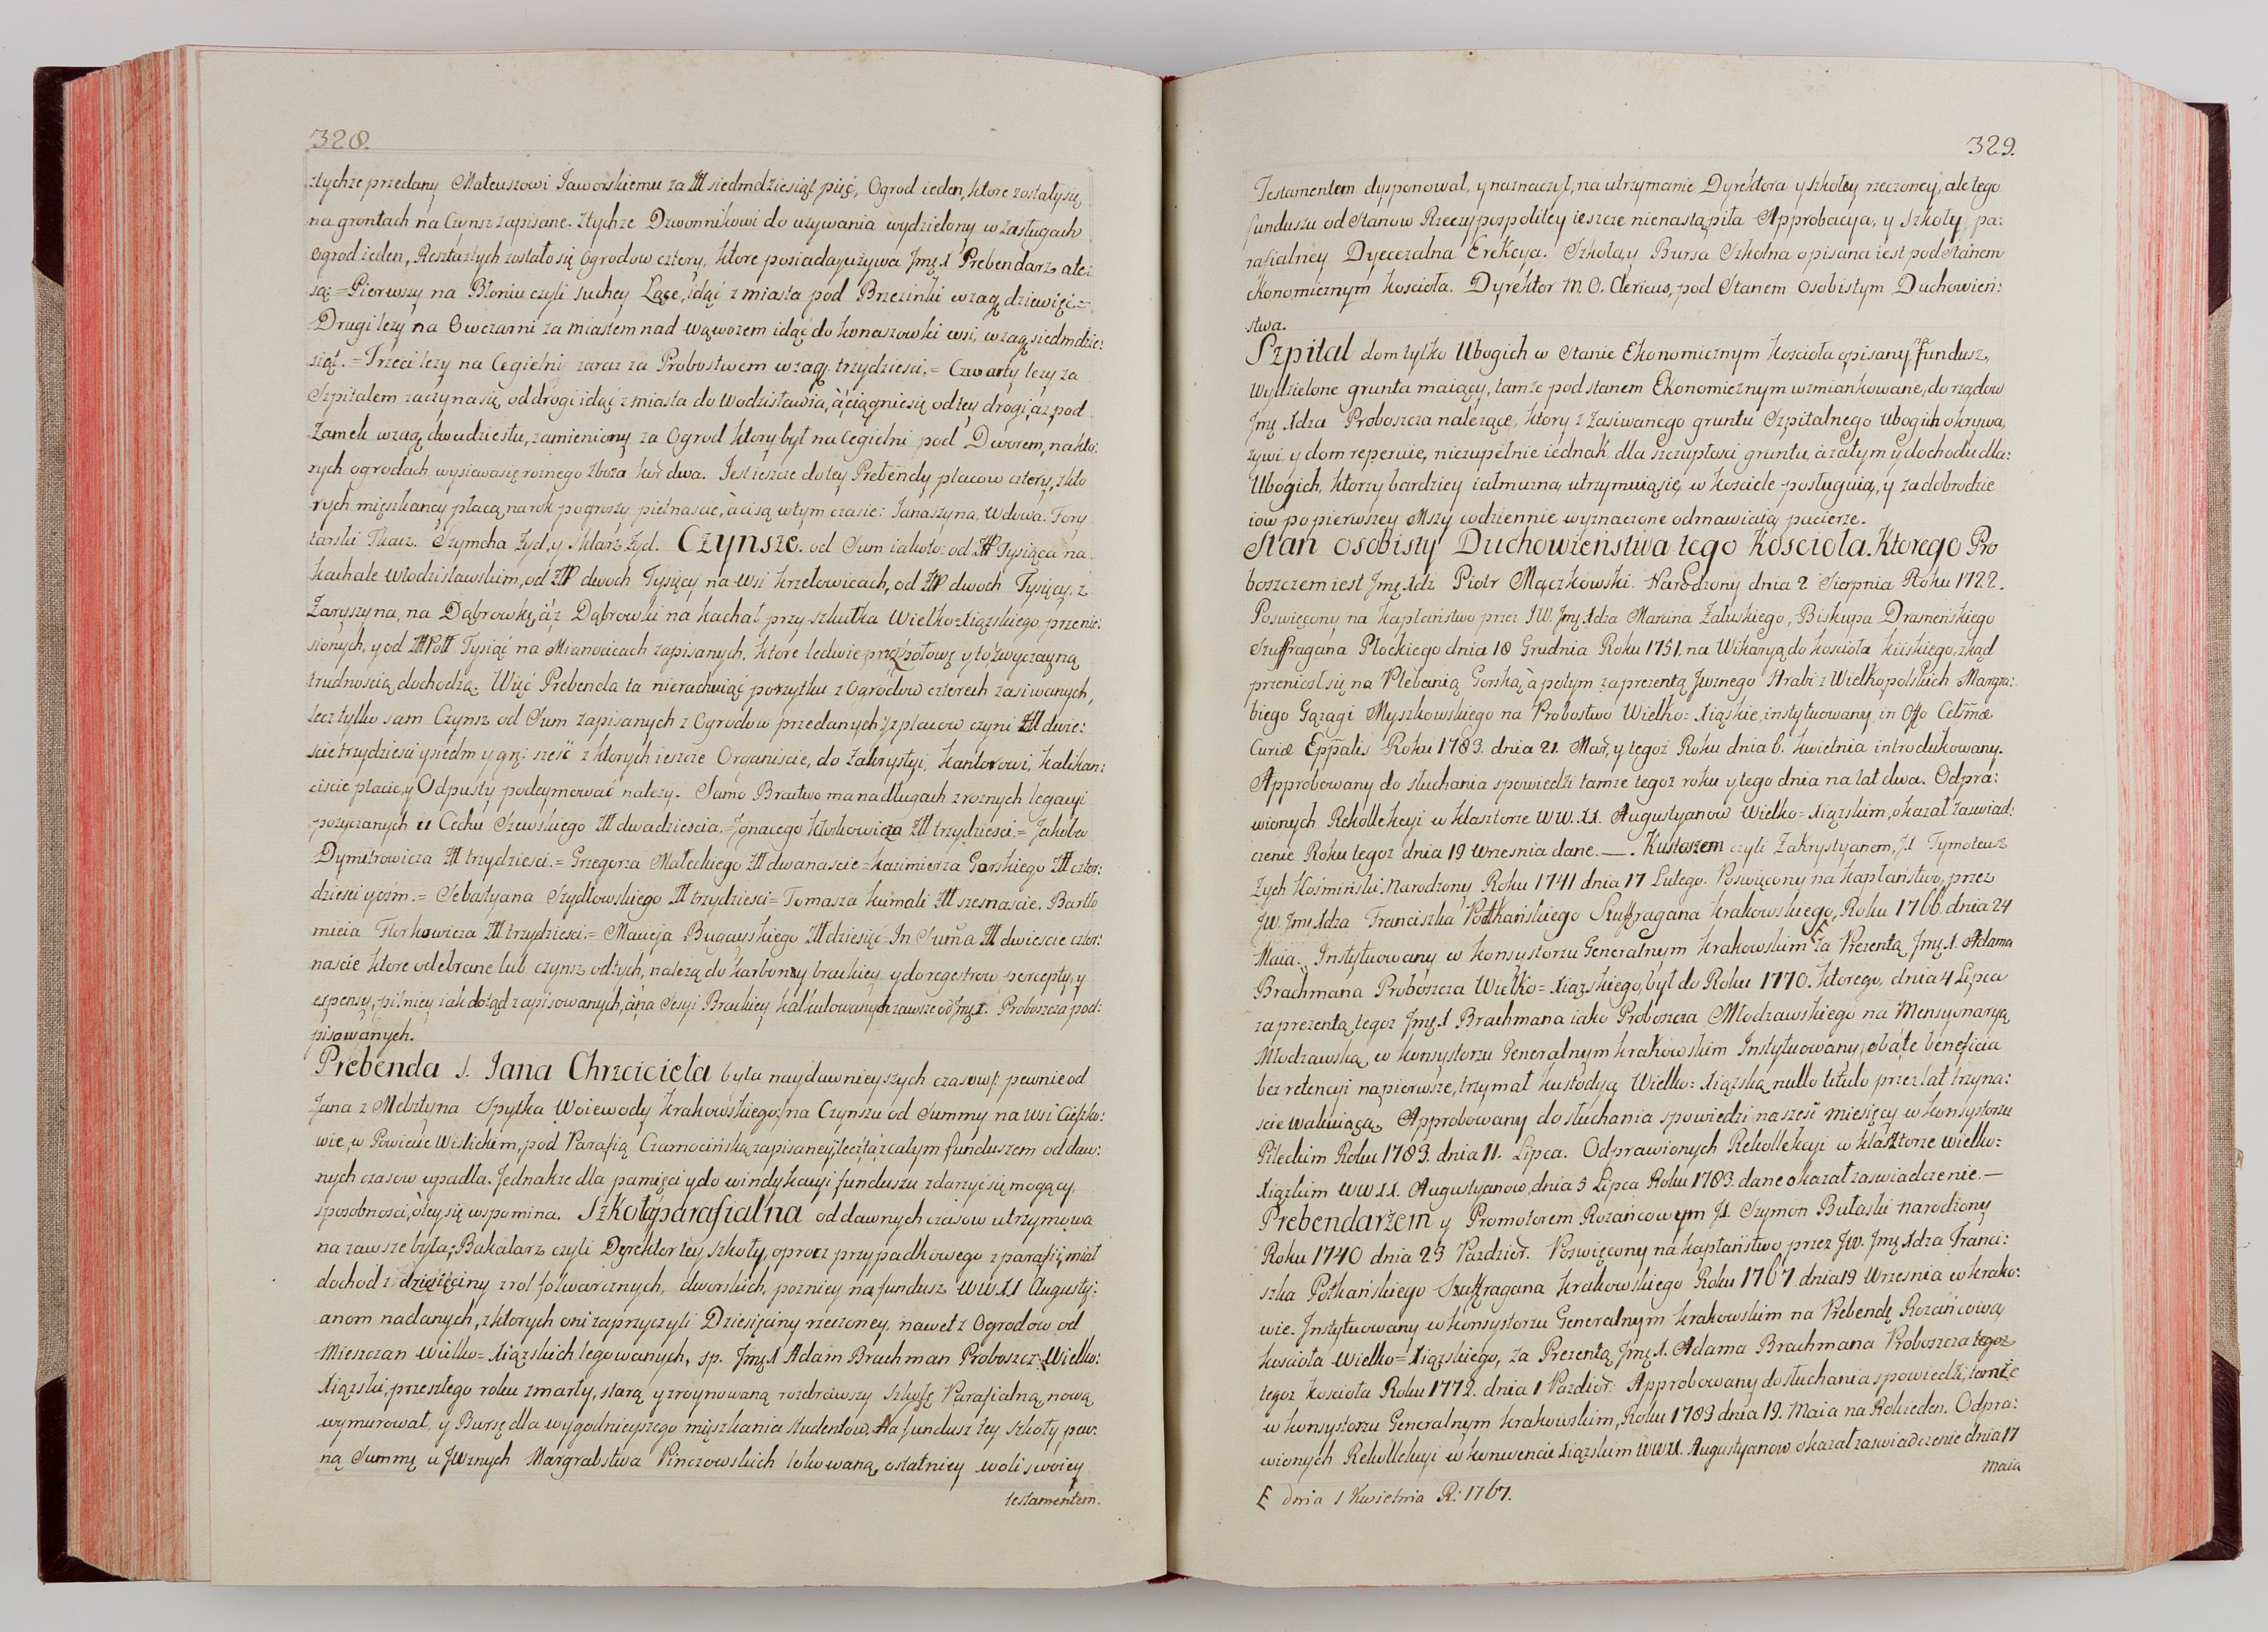 328.
ztychże przedany Mateuszowi Jaworskiemu za Złł siedmdziesiąt pięć, Ogrod ieden, ktore zostały się,
na grontach na Czynsz zapisane. Ztychże Dzwonnikowi do używania wydzielony w zasługach
ogrod ieden, Resztaztych zostało się Ogrodow cztery, ktore posiada y używa Jmę X Prebendarz, a te i
są: = Pierwszy na Błoniu czyli suchey Łące, idąc z miasta pod Brzezinki wzag. dziewięć. =
Drugi leży na Owczarni za miastem nad wąwozem idąc do Konaszowki wsi, wzag siedmdzie:
siąt. = Trzeci leży na Cegielni zaraz za Probostwem wzag. trzydzieści. = Czwarty leży za
Szpitalem zaczyna się od drogi idąc z miasta do Wodzisławia, à ciągnie się od tey drogi, aż pod
Zamek wzag dwudziestu, zamieniony za Ogrod ktory był na Cegielni pod Dworem, na kto:
rych ogrodach wysiewa się rożnego zboża kor dwa. Jest ieszcze do tey Prebendy placow cztery, z kto
rych mięszkancy płacą na rok po groszy piętnaście, à ci są w tym czasie: Janaszyna, Wdowa. Fory
tarski Tkacz. Szymcha Żyd, y Sklarz Żyd. Czynsze. od Sum iako to: od ZłP Tysiąca na
Kachale Włodzisławskim, od ZłP dwoch Tysięcy na Wsi Krzelowicach, od ZłP dwoch Tysięcy, z
Zaryszyna, na Dąbrowkę, à z Dąbrowki na Kachał przy szkułka Wielko=Xiązskiego przenie:
sionych, y od Złł Poll Tysiąć na Mianocicach zapisanych, ktore ledwie przez połowę y to zwyczayną
trudnością dochodzą. Więć Prebenda ta nierachuiąć pożytku z Ogrodow czterech zasiwanych,
lecz tylko sam Czynsz od Sum zapisanych z Ogrodow przedanych, y z placow czyni Złł dwie:
scie trzydzieści y siedm y gr: sześć z ktorych ieszcze Organiscie, do Zakrystyi, Kantorowi, Kalikan:
ciście płacić, y Odpusty podeymować należy. Samo Bractwo ma na długach z rożnych legacyi
pożyczanych u Cechu Szewskiego Złł dwadzieścia. = Ignacego Kłorkowicza Złł trzydzieści. = Jakuba
Dymitrowicza Złł trzydzieści. = Grzegorza Małeckiego Złł dwanaście = Kazimierza Garskiego Złł czter:
dzieści y ośm. = Sebastyana Szydłowskiego Złł trzydzieści = Tomasza Kumali Złł szesnaście. Bartło
mieia Florkowicza Złł trzydzieści. = Macieja Bugayskiego Złł dziesięć = In Suma Złł dwieście czter:
naście ktore odebrane lub czynsz od tych, należą do karbony brackiey y do regestrow percepty, y
expensy, pilniey iak dotąd zapisowanych, à na Sesyi Brackiey kalkulowanych zawsze od Jmę X. Proboszcza pod:
pisowanych.
Prebenda S. Jana Chrzciciela była naydawnieyszych czasow /: pewnie od
Jana z Melsztyna Spytka Woiewody Krakowskiego:/ na Czynszu od Summy na Wsi Cieszko:
wie, w Powiecie Wislickim, pod Parafią Czarnocińską zapisaney, lecz ta z całym funduszem od daw:
nych czasow upadła. Jednakże dla pamięci y do windykacyi funduszu zdarzyć się mogący,
sposobności, ò tey się wspomina. Szkoła parafialna od dawnych czasow utrzymowa
na zawsze była; Bakalarz czyli Dyrektor tey szkoły, oprocz przypadkowego z parafii, miał
dochod z dziesięciny z rol folwarcznych, dworskich, pozniey na fundusz WW.XX Augusty:
anom nadanych, z ktorych oni zaprzyczyli Dziesięciny rzeczoney, nawet z Ogrodow od
Mieszczan Wielko=Xiązskich legowanych, sp. Jmę X Adam Brachman Proboszcz Wielko:
Xiązski, przeszłego roku zmarły, starą y zroynowaną rozebrawszy Szkołę Parafialną, nową
wymurował, y Bursę dla wygodnieyszego mięszkania studentow. Na fundusz tey Szkoły pew:
ną Summę u JWznych Margrabstwa Pinczowskich lokowaną, ostatniey woli swoiey
testamentem.
329.
Testamentem dysponował, y naznaczył, na utrzymanie Dyrektora y szkoley rzeczoney, ale tego
funduszu od Stanow Rzeczypospolitey ieszcze nienastąpiła Approbacya, y Szkoły pa:
rafialney Dyecezalna Erekcya. Szkoła, y Bursa Szkolna opisana iest pod Stanem
ekonomicznym Kościoła. Dyrektor M.O. Clericus, pod Stanem Osobistym Duchowień:
stwa.
Szpital dom tylko Ubogich w Stanie Ekonomicznym Kościoła opisany, na fundusz,
Wydzielone grunta maiący, tamże pod stanem Ekonomicznym wzmiankowane, do rządow
Jmę Xdza Proboszcza należące, ktory z zasiwanego gruntu Szpitalnego Ubogich okrywa,
żywi, y dom reperuie, niezupełnie iednak, dla szczupłości gruntu, a zatym y dochodu dla:
Ubogich, ktorzy bardziey iałmużną utrzymuią się, w Kościele posługuią, y za dobrodzie
iow po pierwszey Mszy codziennie wyznaczone odmawiaią pacierze.
Stan osobisty Duchowieństwa tego Kościoła. Ktorego Pro
boszczem iest Jmę Xdz Piotr Mączkowski. Narodzony dnia 2 Sierpnia Roku 1722.
Poswięcony na kapłaństwo przez JW. Jmę Xdza Marcina Załuskiego, Biskupa Drasmeńskiego
Szuffragana Płockiego dnia 18 Grudnia Roku 1751. na Wikaryą do Kościoła Kiiskiego, zkąd
przeniosł się na Plebanią Gorską, à potym za prezentą Jwznego Hrabi z Wielkopolskich Margra:
biego Gązagi Myszkowskiego na Probostwo Wielko=Xiąskie, instytuowany in Offo Celsmæ
Curiæ Eppalis Roku 1783. dnia 21. Mar, y tegoż Roku dnia 6. Kwietnia introdukowany.
Approbowany do słuchania spowiedzi tamże tegoż roku y tego dnia na lat dwa. Odpra:
wionych Rekollekcyi w klasztorze WW.XX. Augustyanow Wielko=Xiązskim, okazał zaswiad:
czenie Roku tegoż dnia 19 Wrzesnia dane. —. Kustoszem czyli Zakrystyanem, JX Tymoteusz
Zych Kośmiński. Narodzony Roku 1741 dnia 17 Lutego. Poswięcony na Kapłaństwo, przez
JW. Jmę Xdza Franciszka Potkańskiego Szuffragana Krakowskiego, Roku 1766. dnia 24
Maia. Instytuowany w Konsystorzu Generalnym Krakowskim F za Prezentą Jmę X. Adama
Brachmana Proboszcza Wielko=Xiązskiego, był do Roku 1770. ktorego, dnia 4 Lipca
za prezentą tegoż Jmę X Brachmana iako Proboszcza Młodzawskiego na Mensyonaryą
Młodzawską, w Konsystorzu Generalnym Krakowskim Instytuowany, oba te beneficia
bez retencyi na pierwsze, trzymał kustodyą Wielko=Xiązską nullo titulo przez lat trzyna:
scie wakuiącą. Approbowany do słuchania spowiedzi na sześć miesięcy w Konsystorzu
Pileckim Roku 1783. dnia 11. Lipca. Odprawionych Rekollekcyi w klasztorze Wielko=
Xiązkim WW.XX. Augustyanow, dnia 5 Lipca Roku 1783. dane okazał zaswiadczenie. —
Prebendarzem y Promotorem Rożańcowym JX. Szymon Bułaski narodzony
Roku 1740 dnia 23 Pazdzier. Poswięcony na kapłaństwo przez JW. Jmę Xdza Franci:
szka Potkańskiego Szuffragana Krakowskiego Roku 1767 dnia 19 Wrzesnia w Krako:
wie. Instytuowany w Konsystorzu Generalnym Krakowskim na Prebendę Rożańcową
Kościoła Wielko=Xiązskiego, za Prezentą Jmę X. Adama Brachmana Proboszcza tegoż
tegoż Kościoła Roku 1772. dnia 1 Pazdier: Approbowany do słuchania spowiedzi, tamże
w Konsystorzu Generalnym Krakowskim, Roku 1783 dnia 19. Maia na Rok ieden. Odpra:
wionych Rekollekcyi w Konwencie Xiązskim WWXX. Augustyanow okazał zaswiadczenie dnia 17
Maia
F dnia 1 Kwietnia R: 1767.